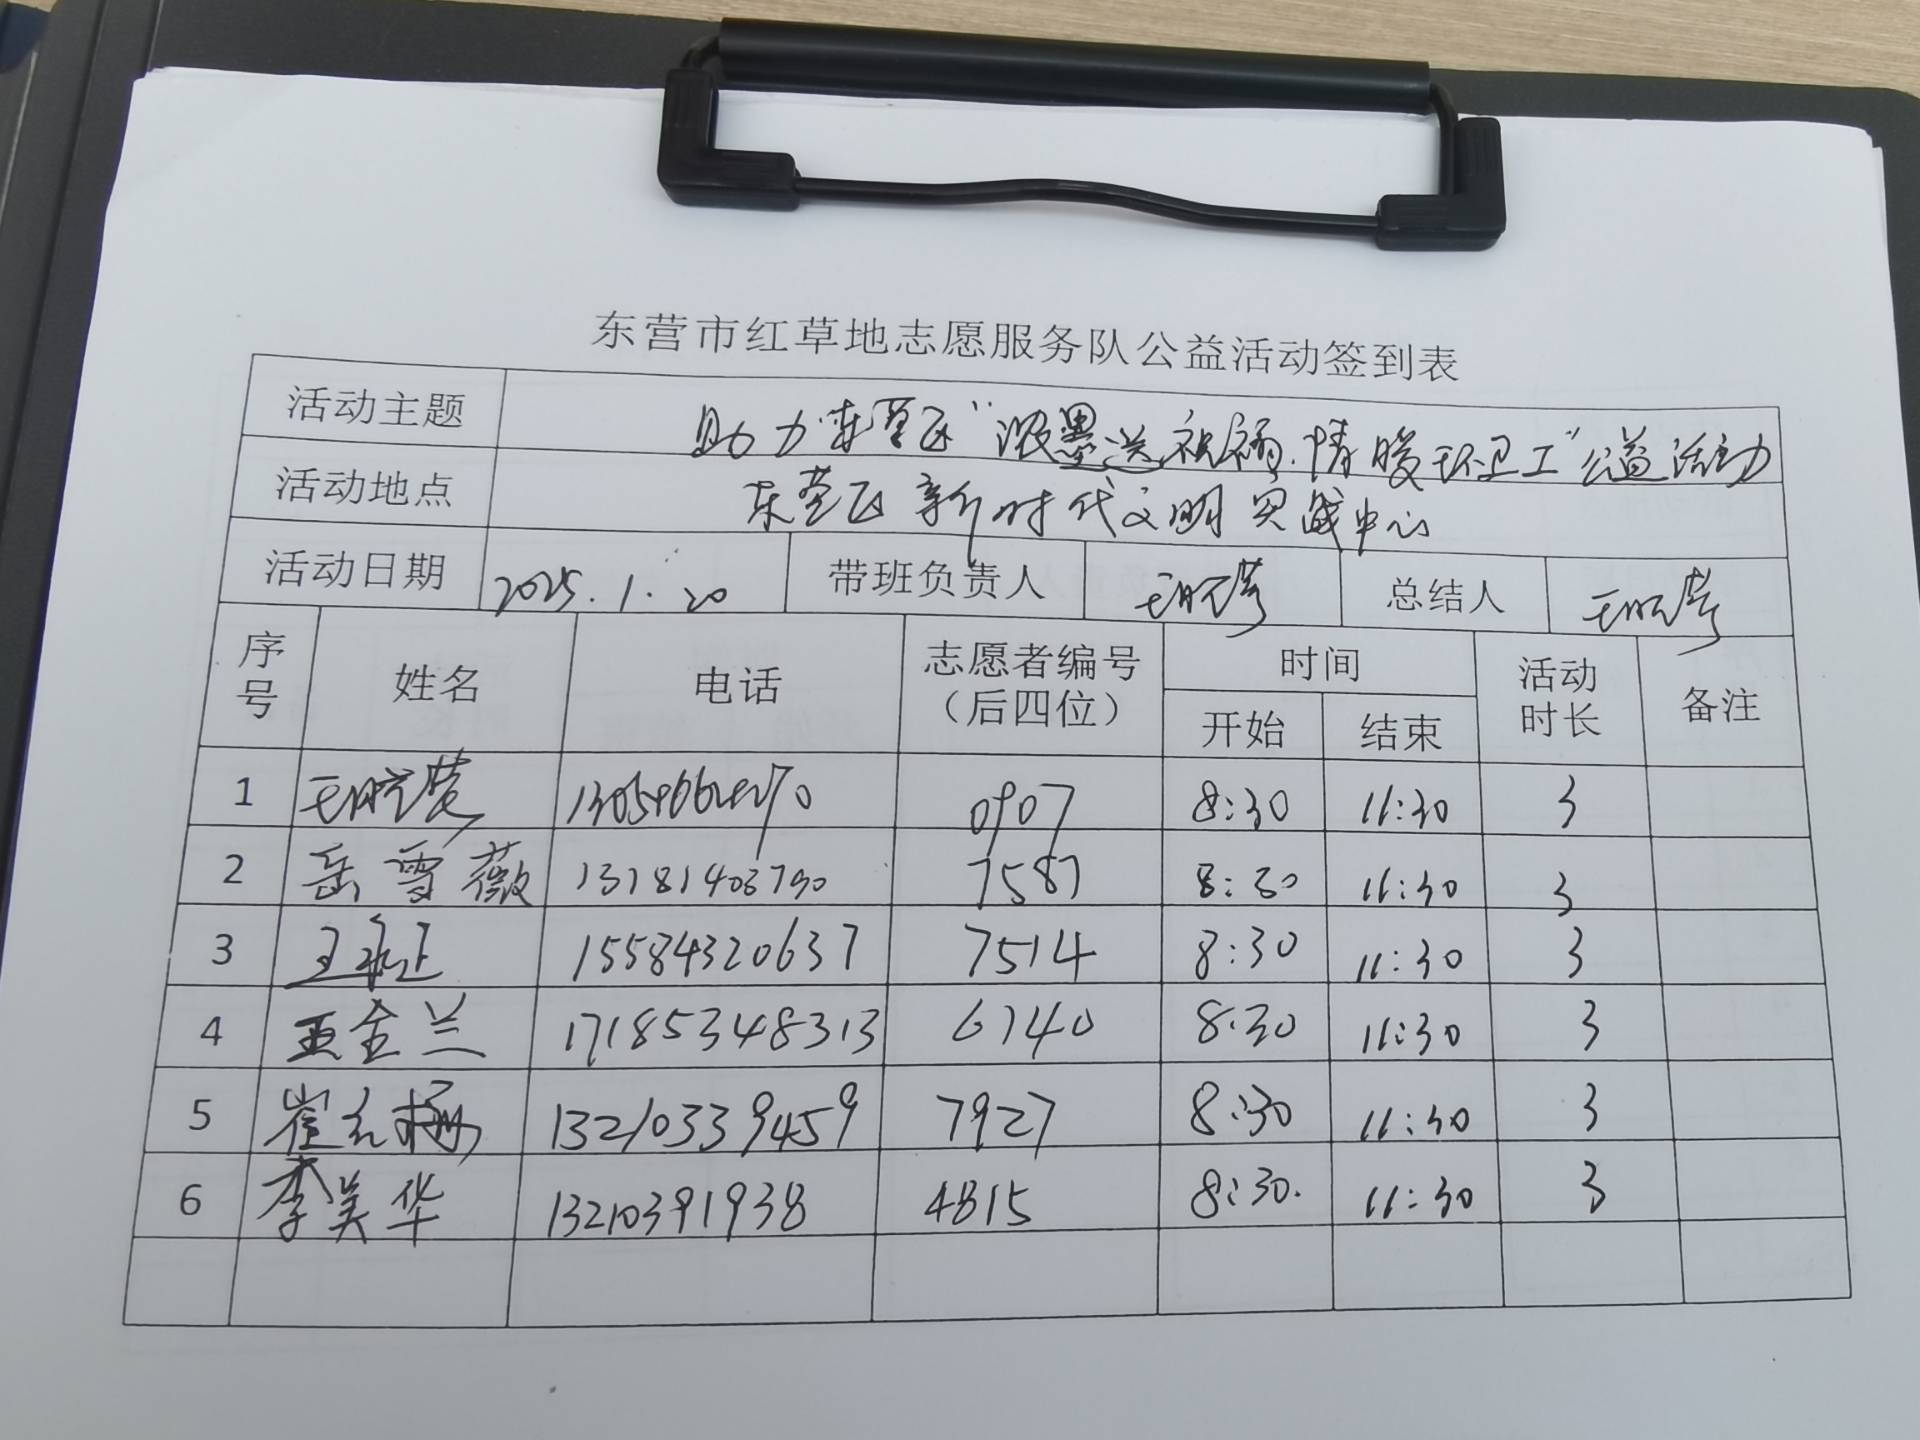 东营市红草地志愿服务队公益活动签到表
活动主题 助力东营区“浓墨送祝福.情暖环卫工”公益活动
活动地点 东营区新时代文明实践中心
活动日期 2025.1.20 带班负责人 总结人
序号 姓名 电话 志愿者编号（后四位） 时间 活动时长 备注
开始 结束
1 0907 8:30 11:30 3
2 岳雪薇 7587 8:30 11:30 3
3 15584320637 7514 8:30 11:30 3
4 王金兰 17185348313 6740 8:30 11:30 3
5 崔 13210339459 7927 8:30 11:30 3
6 李美华 13210391938 4815 8:30. 11:30 3